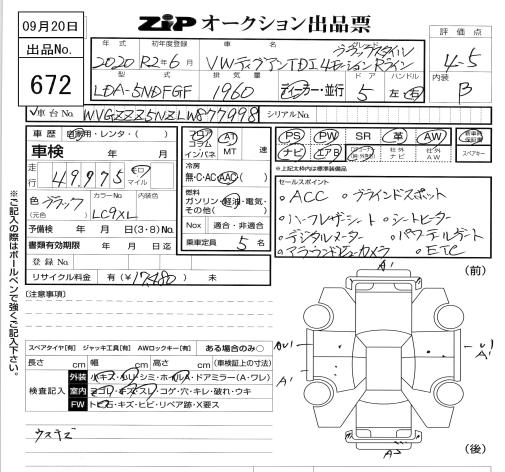 09月20日
出品No.
672
ZIP オークション出品票
評価点
4-5
内装
B
年式 初年度登録 車名 グレード
2020 R2年6月 VWティグアンTDI 4モーションRライン
ブラックスタイル
型式 排気量 ドア ハンドル
LDA-5NDFGF 1960 ディーラー・並行 5 左・右
車台No. WVGZZZ5NZLW877998 シリアルNo.
車歴 自家用・レンタ・( )
車検 年 月
走行 49,975 キロ マイル
色 ブラック (元色) カラーNo LC9XL 内装色
予備検 年 月 日(3・8)No.
書類有効期限 年 月 日迄
登録No.
リサイクル料金 有(¥17,480) 未
フロア コラム インパネ AT MT 速
冷房
無・C・AC・AAC( )
燃料
ガソリン・軽油・電気・その他( )
Nox 適合・非適合
乗車定員 5 名
PS PW SR 革 AW 新車時保証書
ナビ エアB 社外ナビ 社外AW スペアキー
※上記太枠内は標準装備品
セールスポイント
・ACC ・ブラインドスポット
・ハーフレザーシート ・シートヒーター
・デジタルメーター ・パワーテールゲート
・アラウンドビューカメラ ・ETC
※ご記入の際はボールペンで強くご記入下さい。
[注意事項]
スペアタイヤ[有] ジャッキ工具[有] AWロックキー[有] ある場合のみ○
長さ cm 幅 cm 高さ cm (車検証上の寸法)
検査記入
外装 小キズ・凹リ・シミ・ホイルA・ドアミラー(A・ワレ)
室内 ヨゴレ・キズ・スレ・コゲ・穴・キレ・破れ・ウキ
FW トビ石・キズ・ヒビ・リペア跡・X要ス
ウスキズ
(前)
A1
A1
A1
(後)